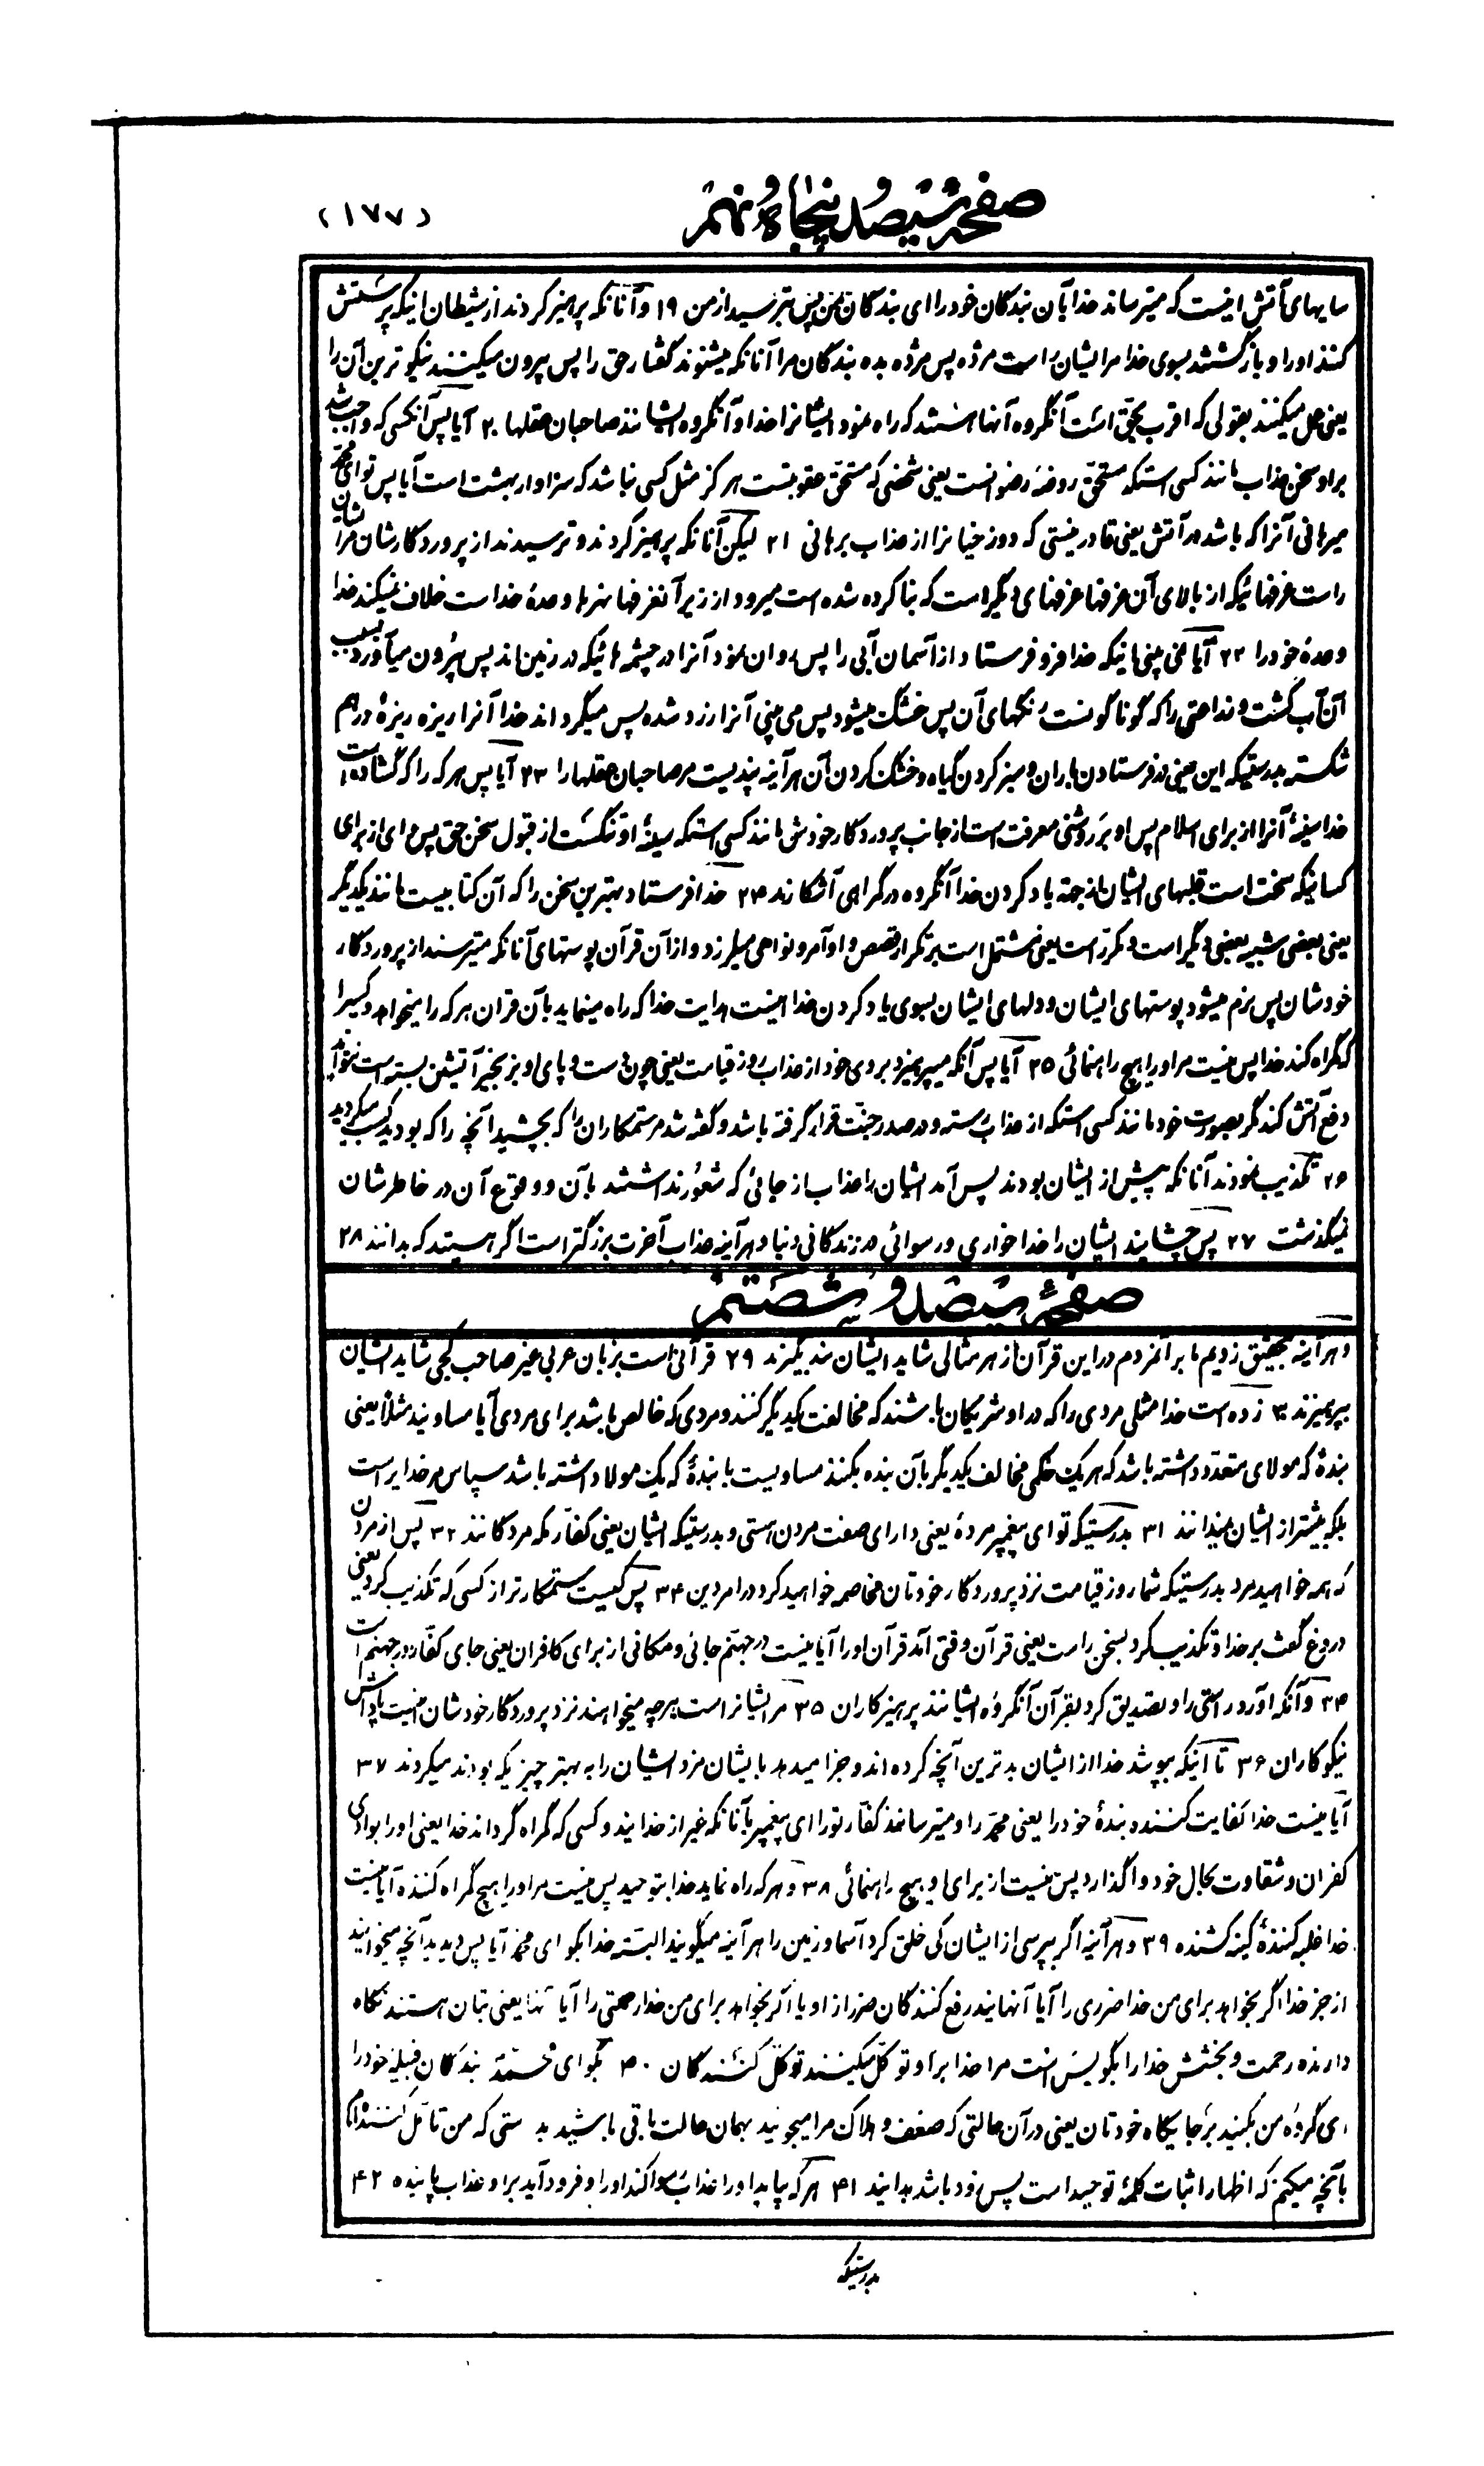 صفحه سیصد و پنجاه و نهم
(۱۷۷)
سایهای آتش اینست که میترساند خدا بآن بندگان خود را ای بندگان من پس بترسید از من ۱۹ و آنانکه پرهیز کردند از شیطان اینکه پرستش
کنند او را و بازگشتند بسوی خدا مر ایشان راست مژده پس مژده بده بندگان مرا آنانکه میشنوند گفتار حق را پس پیرون میکنند نیکوترین آن را
یعنی عمل میکنند بقولی که اقرب بحق است آنگروه آنها استند که راه نمود ایشانرا خدا و آنگروه ایشانند صاحبان عقلها ۲۰ آیا پس آنکسی که واجب شد
بر او سخن عذاب مانند کسی استکه مستحق روضه رضوانست یعنی شخصی که مستحق عقوبتست هرگز مثل کسی نباشد که سزاوار بهشت است آیا پس تو ای محمد
میرهانی آنرا که باشد در آتش یعنی قادر نیستی که دوزخیانرا از عذاب برهانی ۲۱ لیکن آنانکه پرهیز کردند و ترسیدند از پروردگارشان مر ایشان
راست غرفهائیکه از بالای آن غرفها غرفهای دیگر است که بنا کرده شده است میرود از زیر آنغرفها نهرها وعدهٔ خداست خلاف نمیکند خدا
وعدهٔ خود را ۲۲ آیا نمی بینی اینکه خدا فرو فرستاد از آسمان آبی را پس روان نمود آنرا در چشمه هائیکه در زمین اند پس بیرون میآورد بسبب
آن آب کشت و نداحتی را که گوناگونست رنگهای آن پس خشک میشود پس می بینی آنرا زرد شده پس میگرداند خدا آنرا ریزه ریزهٔ درهم
شکسته بدرستیکه این یعنی در فرستادن باران و سبز کردن گیاه و خشک کردن آن هرآینه پندیست مر صاحبان عقلها را ۲۳ آیا پس هر که را که گشاده است
خدا سینهٔ آنرا از برای اسلام پس او بر روشنی معرفت است از جانب پروردگار خودش مانند کسی استکه سینهٔ او تنگست از قبول سخن حق پس وای از برای
کسانیکه سخت است قلبهای ایشان از جهته یاد کردن خدا آنگروه در گمراهی آشکارند ۲۴ خدا فرستاد بهترین سخن را که آن کتابیست مانند یکدیگر
یعنی بعضی شبیه بعضی دیگر است و مکرر است یعنی مشتمل است بر تکرار قصص و اوامر و نواهی میلرزد و از آن قرآن پوستهای آنانکه میترسند از پروردگار
خودشان پس نرم میشود پوستهای ایشان و دلهای ایشان بسوی یاد کردن خدا اینست هدایت خدا که راه مینماید بآن قران هر که را میخواهد و کسیرا
که گمراه کند خدا پس نیست مر او را هیچ راهنمائی ۲۵ آیا پس آنکه میپرهیزد بروی خود از عذاب روز قیامت یعنی چون دست و پای او بزنجیر آتشین بسته است نمیتواند
دفع آتش کند مگر بصورت خود مانند کسی استکه از عذاب رسته و در صدر جنت قرار گرفته باشد و گفته شد مر ستمکاران را که بچشید آنچه را که بودید کسب میکردید
۲۶ تکذیب نمودند آنانکه پیش از ایشان بودند پس آمد ایشان را عذاب از جائی که شعور نداشتند بآن و وقوع آن در خاطرشان
نمیگذشت ۲۷ پس چشانید ایشان را خدا خواری و رسوائی در زندگانی دنیا و هرآینه عذاب آخرت بزرگتر است اگر هستید که بدانند ۲۸
صفحه سیصد و شصتم
و هرآینه بتحقیق زدیم ما بر آنمردم در این قرآن از هر مثالی شاید ایشان پند بگیرند ۲۹ قرآنی است بزبان عربی غیر صاحب کجی شاید ایشان
بپرهیزند ۳۰ زده است خدا مثلی مردی را که در او شریکان باشند که مخالفت یکدیگر کنند و مردی که خالص باشد برای مردی آیا مساویند مثلاً یعنی
بندهٔ که مولای متعدد داشته باشد که هر یک حکمی مخالف یکدیگر بآن بنده بکنند مساویست با بندهٔ که یک مولا داشته باشد سپاس مر خدا یراست
بلکه بیشتر از ایشان نمیدانند ۳۱ بدرستیکه تو ای پیغمبر مردهٔ یعنی دارای صفت مردن هستی و بدرستیکه ایشان یعنی کفار مکه مردگانند ۳۲ پس از مردن
که همه خواهید مرد بدرستیکه شما روز قیامت نزد پروردگار خودتان مخاصمه خواهید کرد در امر دین ۳۳ پس کیست ستمکارتر از کسی که تکذیب کرد یعنی
دروغ گفت بر خدا و تکذیب کرد بسخن راست یعنی قرآن وقتی آمد قرآن او را آیا نیست در جهنم جائی و مکانی از برای کافران یعنی جای کفار در جهنم است
۳۴ و آنکه آورد راستی را و تصدیق کرد بقرآن آنگروه ایشانند پرهیزکاران ۳۵ مر ایشانراست هرچه میخواهند نزد پروردگار خودشان اینست پاداش
نیکوکاران ۳۶ تا آنیکه بپوشد خدا از ایشان بدترین آنچه کرده اند و جزا میدهد بایشان مزد ایشان را به بهتر چیزیکه بودند میکردند ۳۷
آیا نیست خدا کفایت کننده بندهٔ خود را یعنی محمد را و میترسانند کفار تو را ای پیغمبر بآنانکه غیر از خدایند و کسی که گمراه گرداند خدا یعنی او را بوادی
کفران و شقاوت بحال خود واگذارد پس نیست از برای او هیچ راهنمائی ۳۸ و هر که راه نماید خدا بتوحید پس نیست مر او را هیچ گمراه کننده آیا نیست
خدا غلبه کنندهٔ کینه کشنده ۳۹ و هرآینه اگر بپرسی از ایشان کی خلق کرد آسما و زمین را هرآینه میگویند البته خدا بگو ای محمد آیا پس دیدید آنچه میخوانید
از جز خدا اگر بخواهد برای من خدا ضرری را آیا آنهایند رفع کنندگان ضرر از او یا اگر بخواهد برای من خدا رحمتی را آیا آنها یعنی بتان هستند نگاه
دارنده رحمت و بخشش خدا را بگو بس است مرا خدا بر او توکل میکنند توکل کنندگان ۴۰ بگو ای محمد بندگان قبیلهٔ خود را
ای گروه من بکنید بر جایگاه خودتان یعنی در آن حالتی که ضعف و هلاک مرا میجوئید بهمان حالت باقی باشید بدرستی که من تأمل کننده ام
بآنچه میکنم که اظهار اثبات کلمهٔ توحید است پس زود باشد بدانید ۴۱ هر که بیاید او را عذاب رسوا کند او را و فرود آید بر او عذاب پاینده ۴۲
بدرستیکه